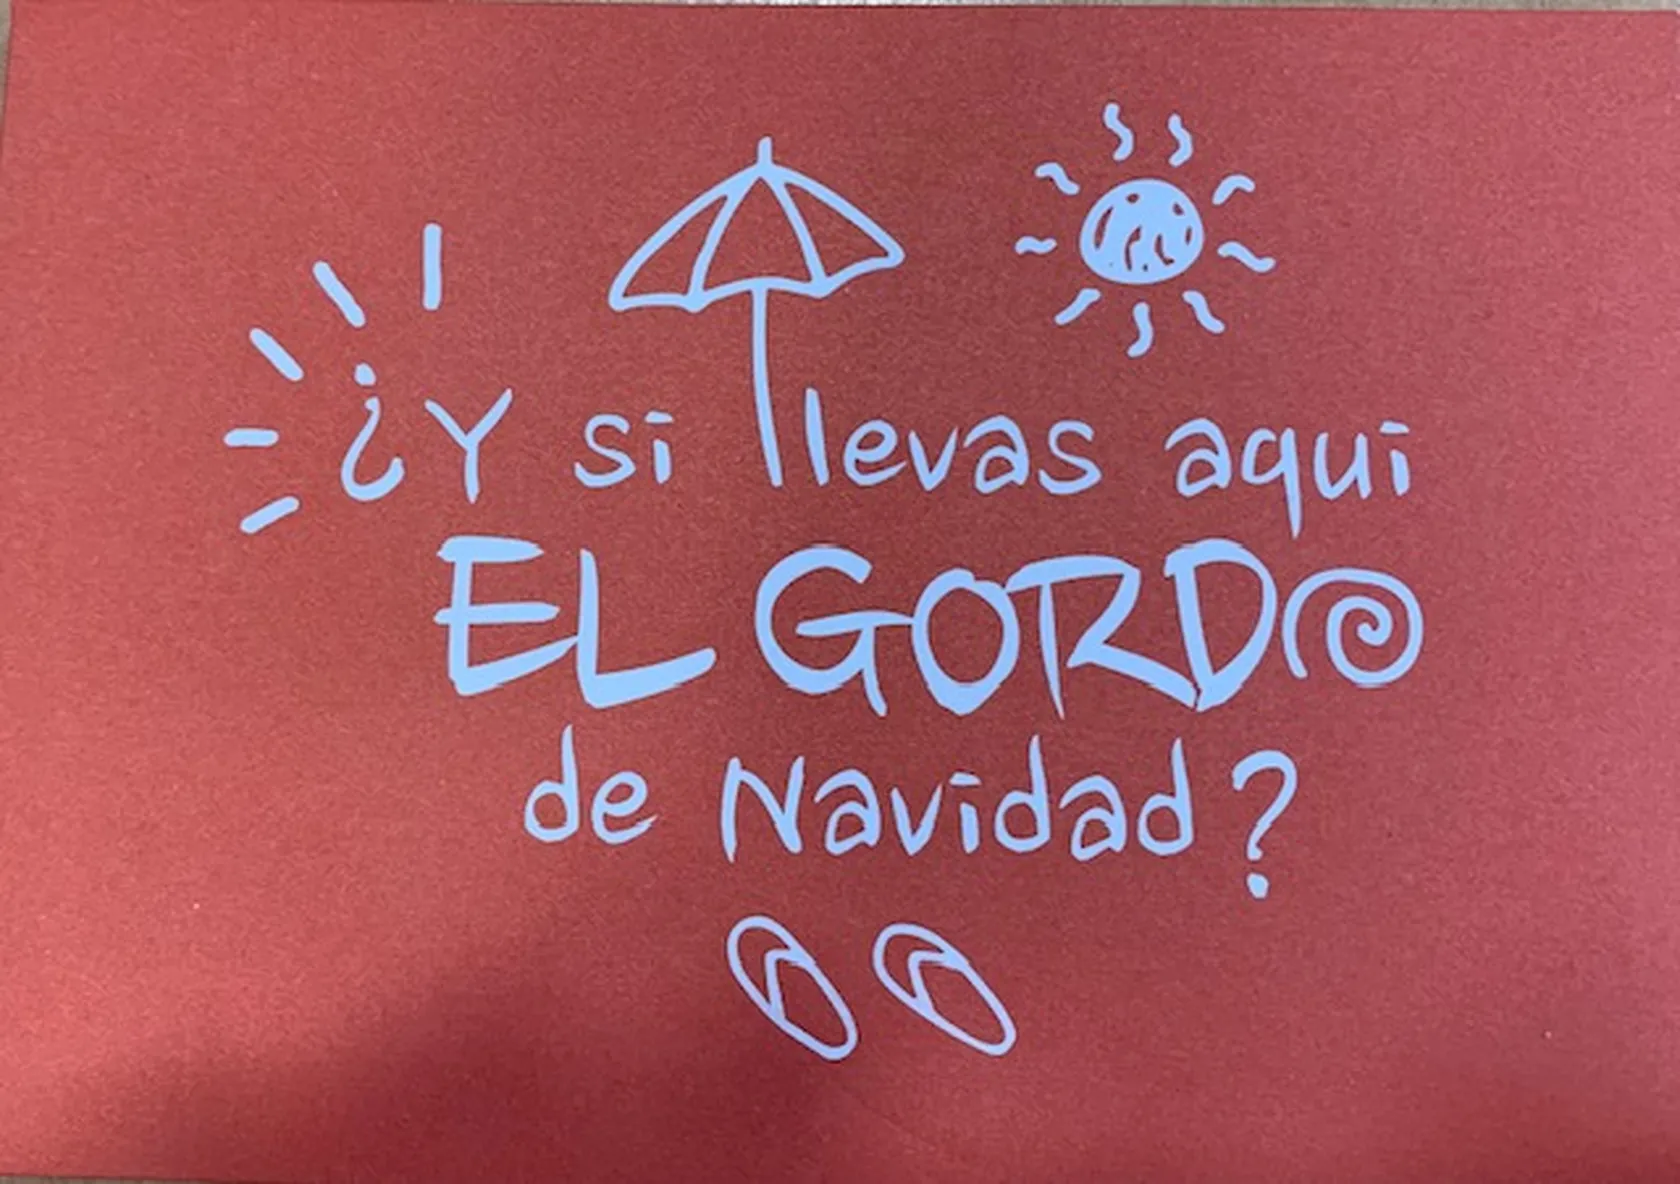 ¿Y si llevas aquí
EL GORDO
de Navidad?